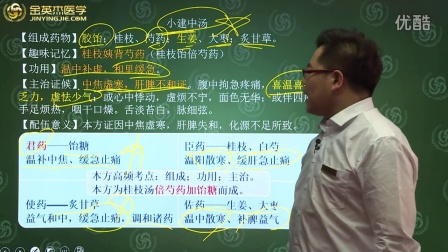 金英杰医学
JINYINGJIE.COM
优酷
小建中汤
【组成药物】胶饴；桂枝、芍药；生姜、大枣；炙甘草。
【趣味记忆】桂枝姨背芍药（桂枝饴倍芍药）
【功用】温中补虚，和里缓急。
【主治证候】中焦虚寒，肝脾不和证。腹中拘急疼痛，喜温喜
乏力，虚怯少气；或心中悸动，虚烦不宁，面色无华；或伴四
手足烦热，咽干口燥。舌淡苔白，脉细弦。
【配伍意义】本方证因中焦虚寒，肝脾失和，化源不足所致。
君药——饴糖
温补中焦、缓急止痛
臣药——桂枝、白芍
温阳散寒、缓肝急止痛
本方高频考点：组成；功用；主治。
本方为桂枝汤倍芍药加饴糖而成。
使药——炙甘草
益气和中，缓急止痛，调和诸药
佐药——生姜、大枣
温中散寒、补脾益气